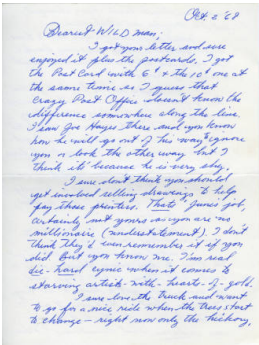 Oct. 2 '68
Dearest WILD man;
I got your letter and sure
enjoyed it plus the postcards. I got
the Post Card with 6¢ & the 10¢ one at
the same time so I guess that
crazy Post Office doesn't know the
difference somewhere along the line.
I saw Joe Hays there and you know
how he will go out of his way to ignore
you or look the other way but I
think it's because he is very shy.
I sure don't think you should
get involved selling drawings to help
pay those printers. That's June's job,
certainly not yours as you are no
millionaire (understatement). I don't
think they'd even remember it if you
did but you know me. I'm real
die-hard cynic when it comes to
starving artists-with-hearts-of-gold.
I sure love the truck and want
to go for a nice ride when the trees start
to change - right now only the hickory,